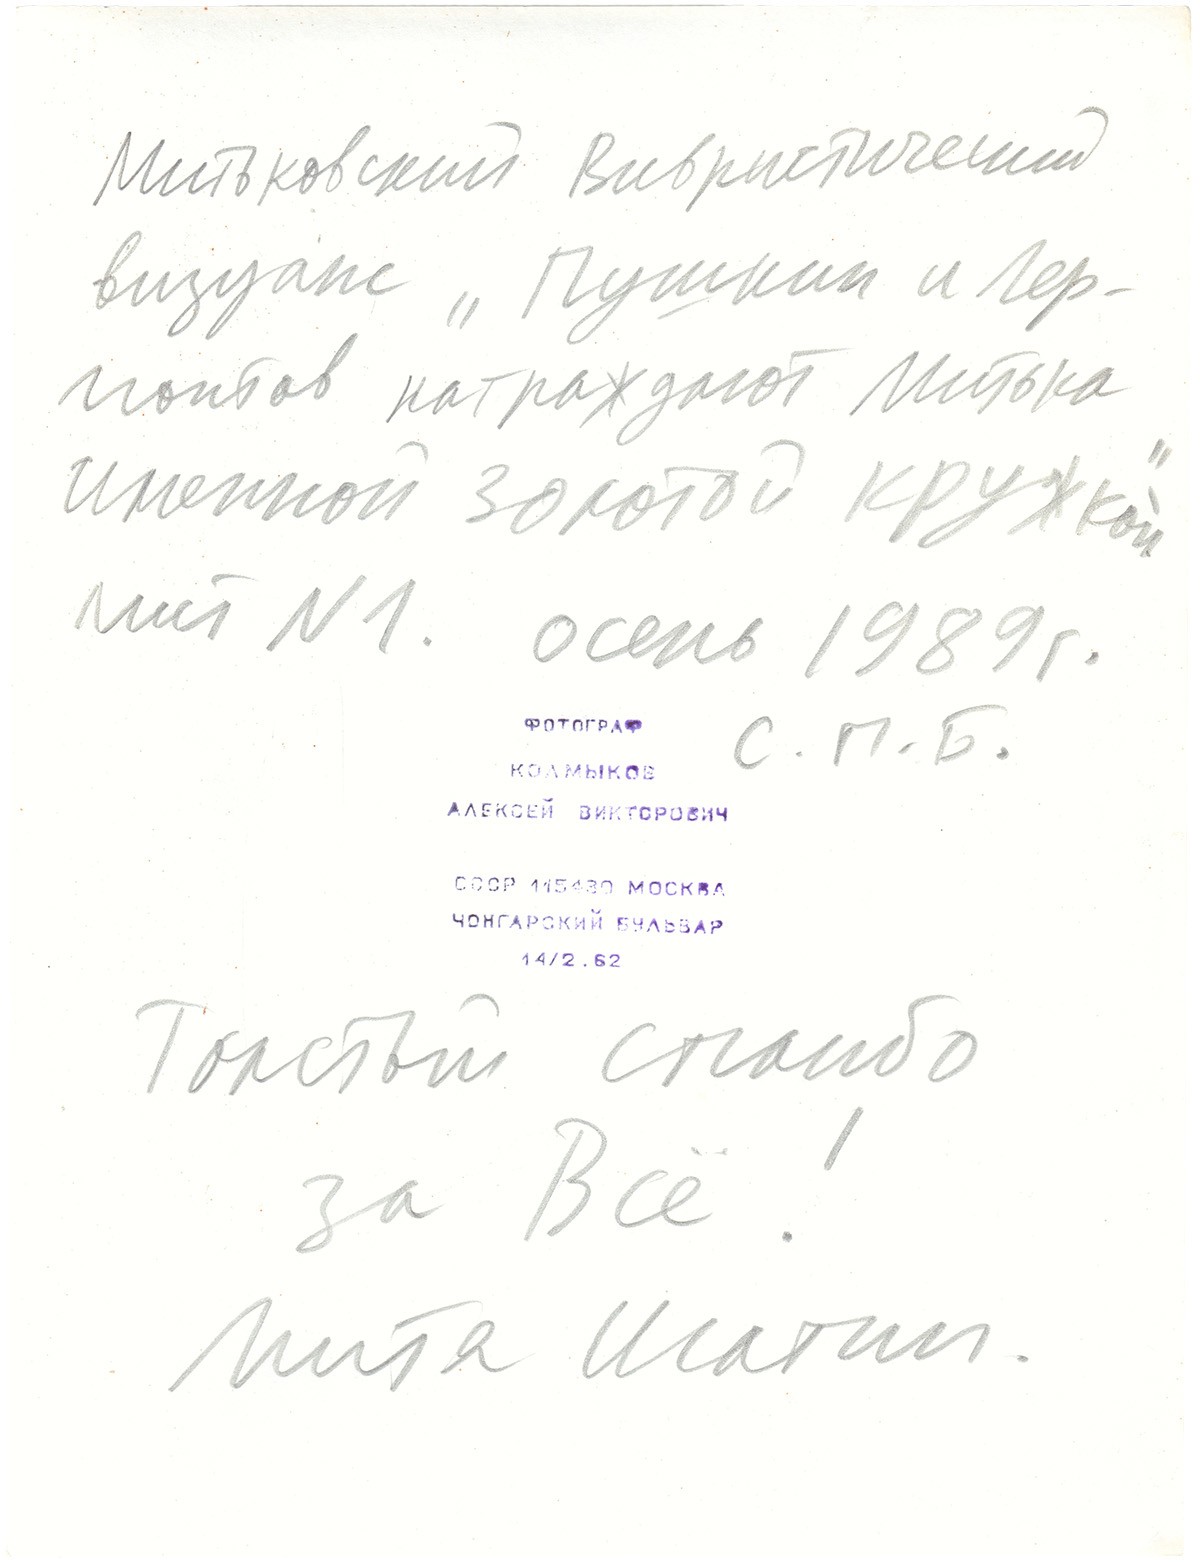 Митьковский Вивристический
визуанс „Пушкин и Лер-
монтов натраждают Митька
именной золотой кружкой”
лист N1. осень 1989 г.
С.П.Б.
ФОТОГРАФ
КОЛМЫКОВ
АЛЕКСЕЙ ВИКТОРОВИЧ
СССР 115430 МОСКВА
ЧОНГАРСКИЙ БУЛЬВАР
14/2.62
Толстый спасибо
за Всё!
Митя Шагин.